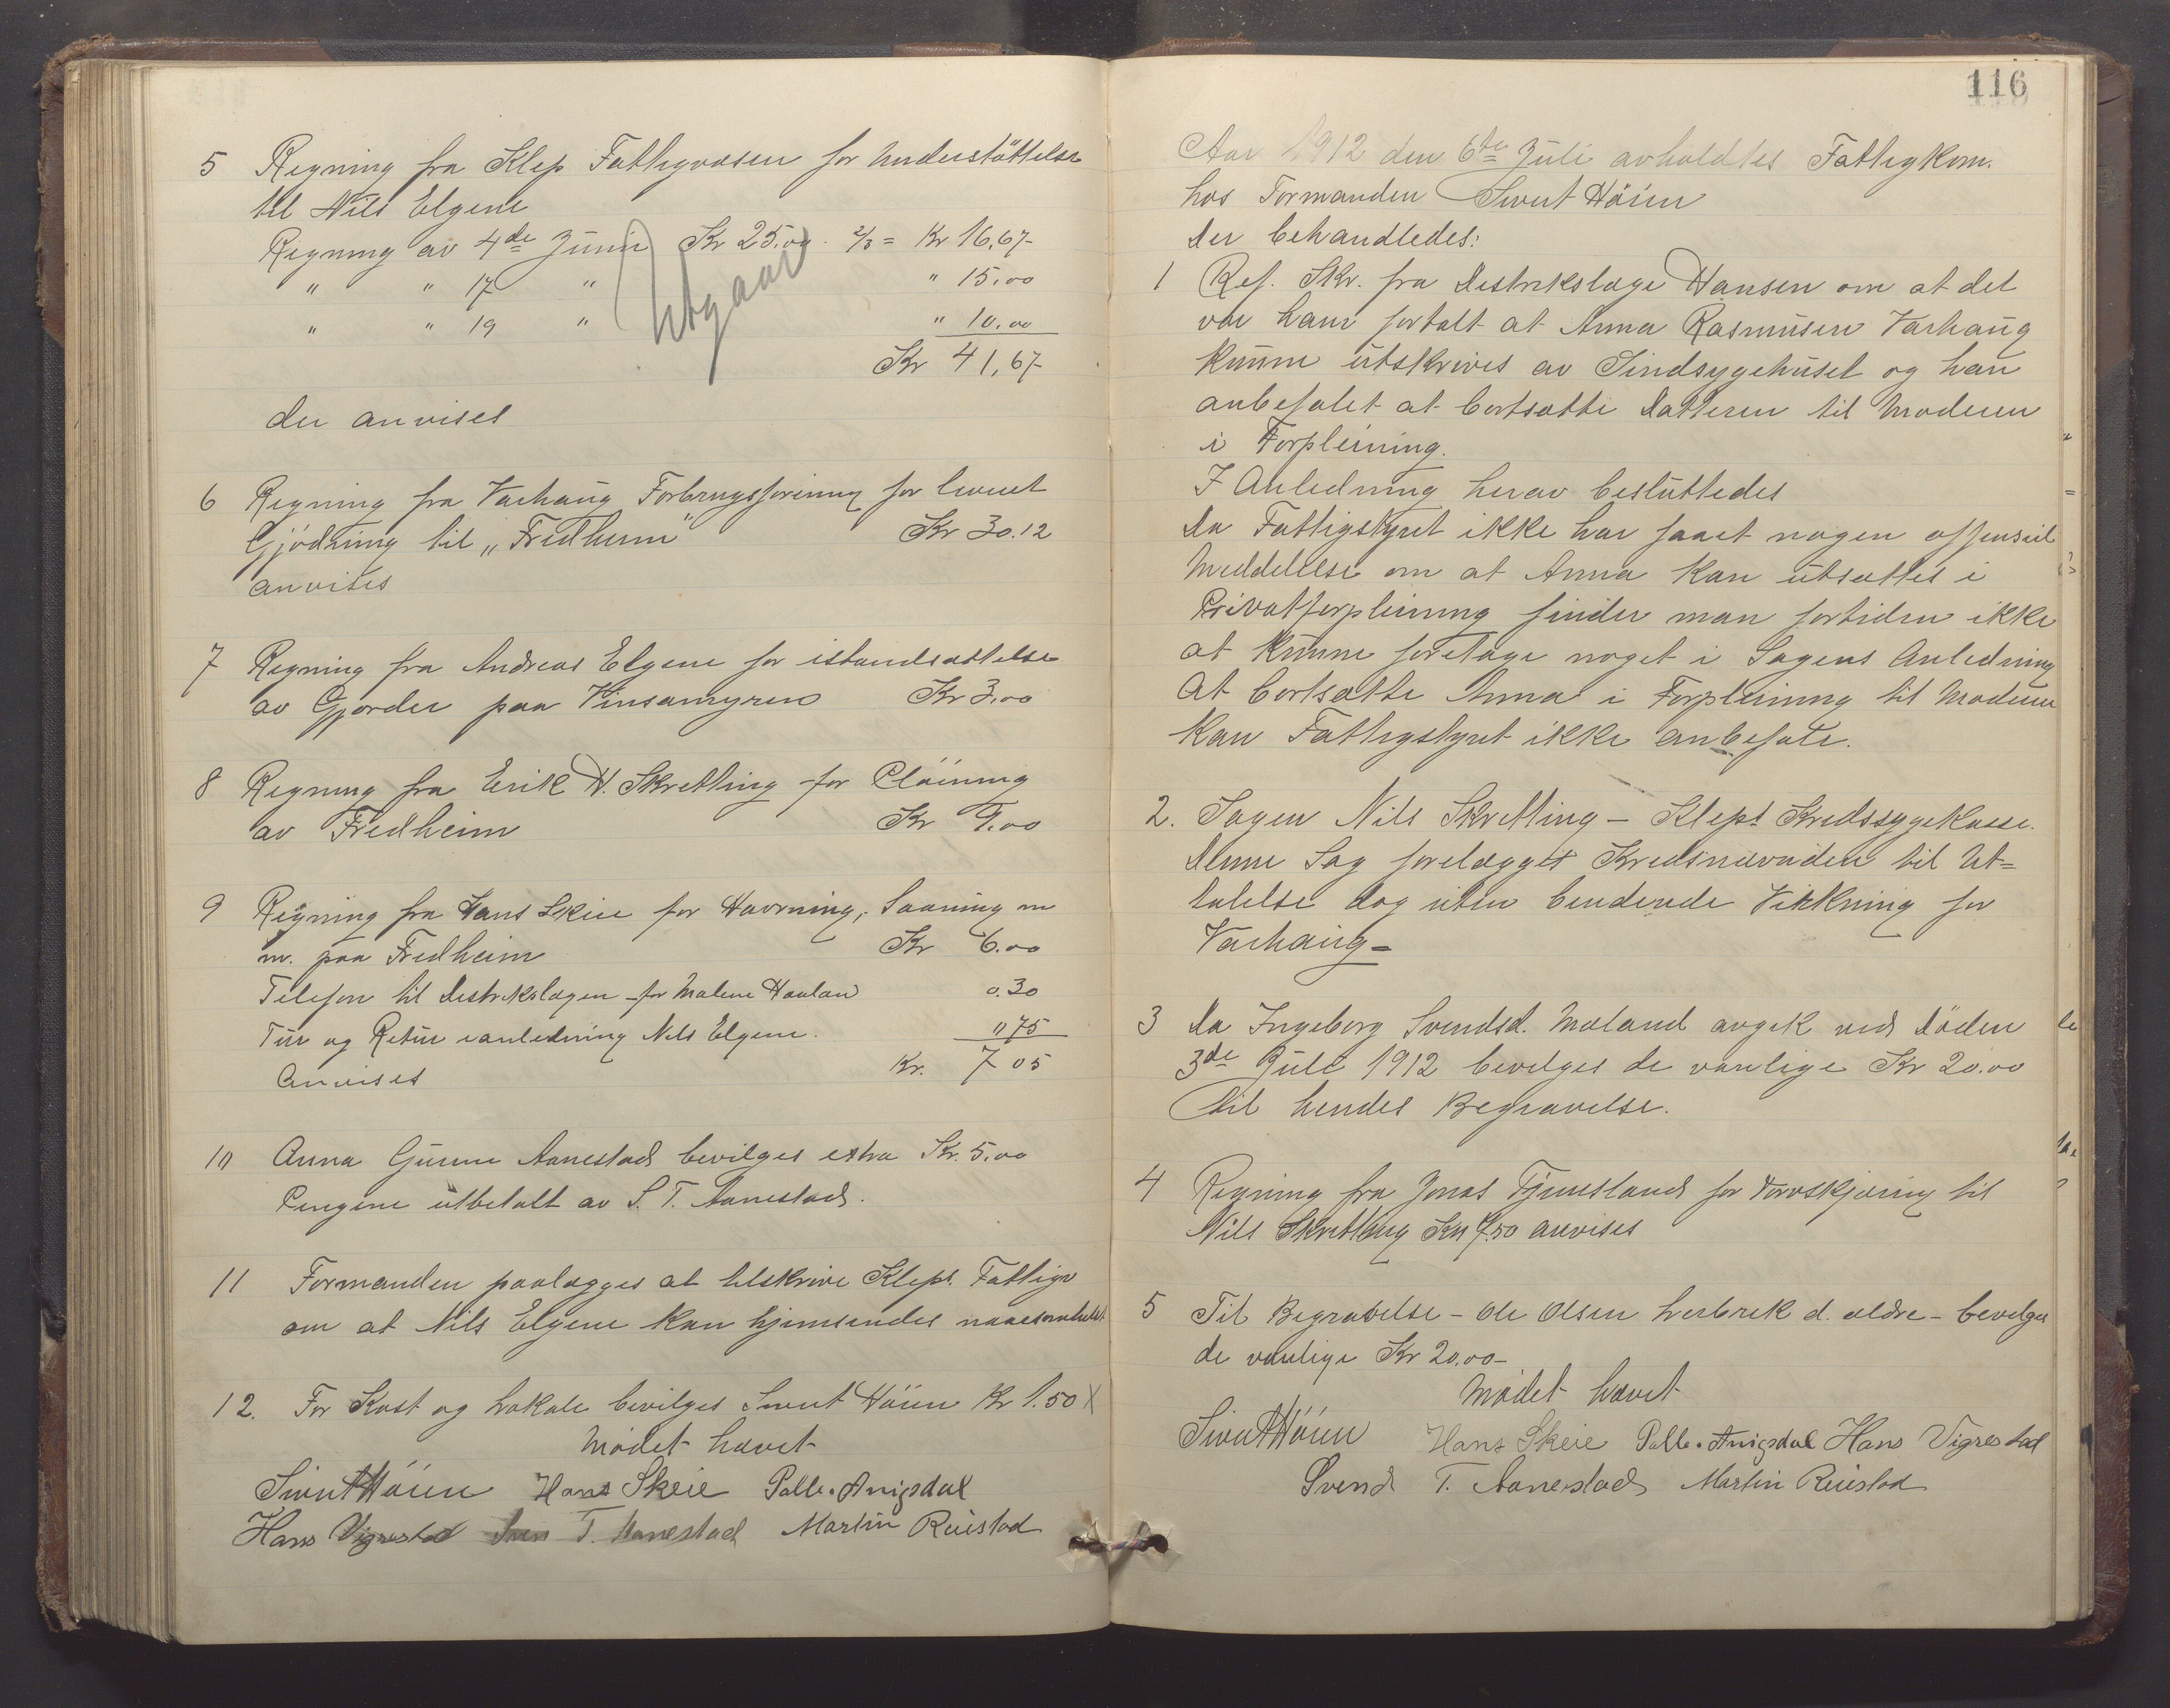 5 Regning fra Klep Fattigvæsen for Understöttelse
til Nils Elgene
Regning av 4de Juni Kr 25.00. 2/3 = Kr 16,67
" " 17 " " 15.00
" " 19 " " 10.00
Utgaar
Kr 41,67
der anvises
6 Regning fra Varhaug Forbrugsforening for leveret
Gjödning til „Fredheim" Kr 30.12
anvises
7 Regning fra Andreas Elgene for istandsættelse
av Gjærder paa Vinsamyren Kr 3.00
8 Regning fra Erik H. Skretting for Plöining
av Fredheim Kr 9.00
9 Regning fra Hans Skeie for Havrning, Saaning m
m. paa Fredheim Kr 6.00
Telefon til Distrikslægen for Malene Haaland 0.30
Tur og Retur ianledning Nils Elgene. " 75
Anvises Kr. 7 05
10 Anna Gurine Aanestad bevilges extra Kr. 5.00
Pengene utbetalt av S. T. Aanestad.
11 Formanden paalægges at tilskrive Klep. Fattigv
om at Nils Elgene kan hjemsendes naarsomhelst.
12. For Kost og Lokale bevilges Sivert Höien Kr 1.50 X
Mödet hævet
Sivert Höien Hans Skeie Palle Anigsdal
Hans Vigrestad Sven T. Aanestad Martin Reiestad
116
Aar 1912 den 6te Juli avholdtes Fattigkom.
hos Formanden Sivert Höien
Der behandledes:
1 Ref. Skr. fra Distrikslæge Hansen om at det
var ham fortalt at Anna Rasmusen Varhaug
kunne utskrives av Sindsygehuset og han
anbefalet at bortsætte Datteren til Moderen
i Forpleining.
I Anledning herav besluttedes
Da Fattigstyret ikke har faaet nogen offensiel
Meddelelse om at Anna kan utsættes i
Privatforpleining finder man fortiden ikke
at kunne foretage noget i Sagens Anledning
At bortsætte Anna i Forpleining til Moderen
kan Fattigstyret ikke anbefale.
2. Sagen Nils Skretting – Kleps Kredssygekasse.
Denne Sag forelægges Kredsnævnden til Ut=
talelse dog uten bindende Virkning for
Varhaug –
3 Da Ingeborg Svendsd. Mæland avgik ved Döden
3de Juli 1912 bevilges de vanlige Kr 20.00
til hendes Begravelse.
4 Regning fra Jonas Tjensland for Torvskjæring til
Nils Skretting Kr 4.50 anvises
5 Til Begravelse – Ole Olsen Lerbrek d. ældre – bevilges
de vanlige Kr 20.00 –
Mödet hævet
Sivert Höien Hans Skeie Palle Anigsdal Hans Vigrestad
Svend T. Aanestad Martin Reiestad